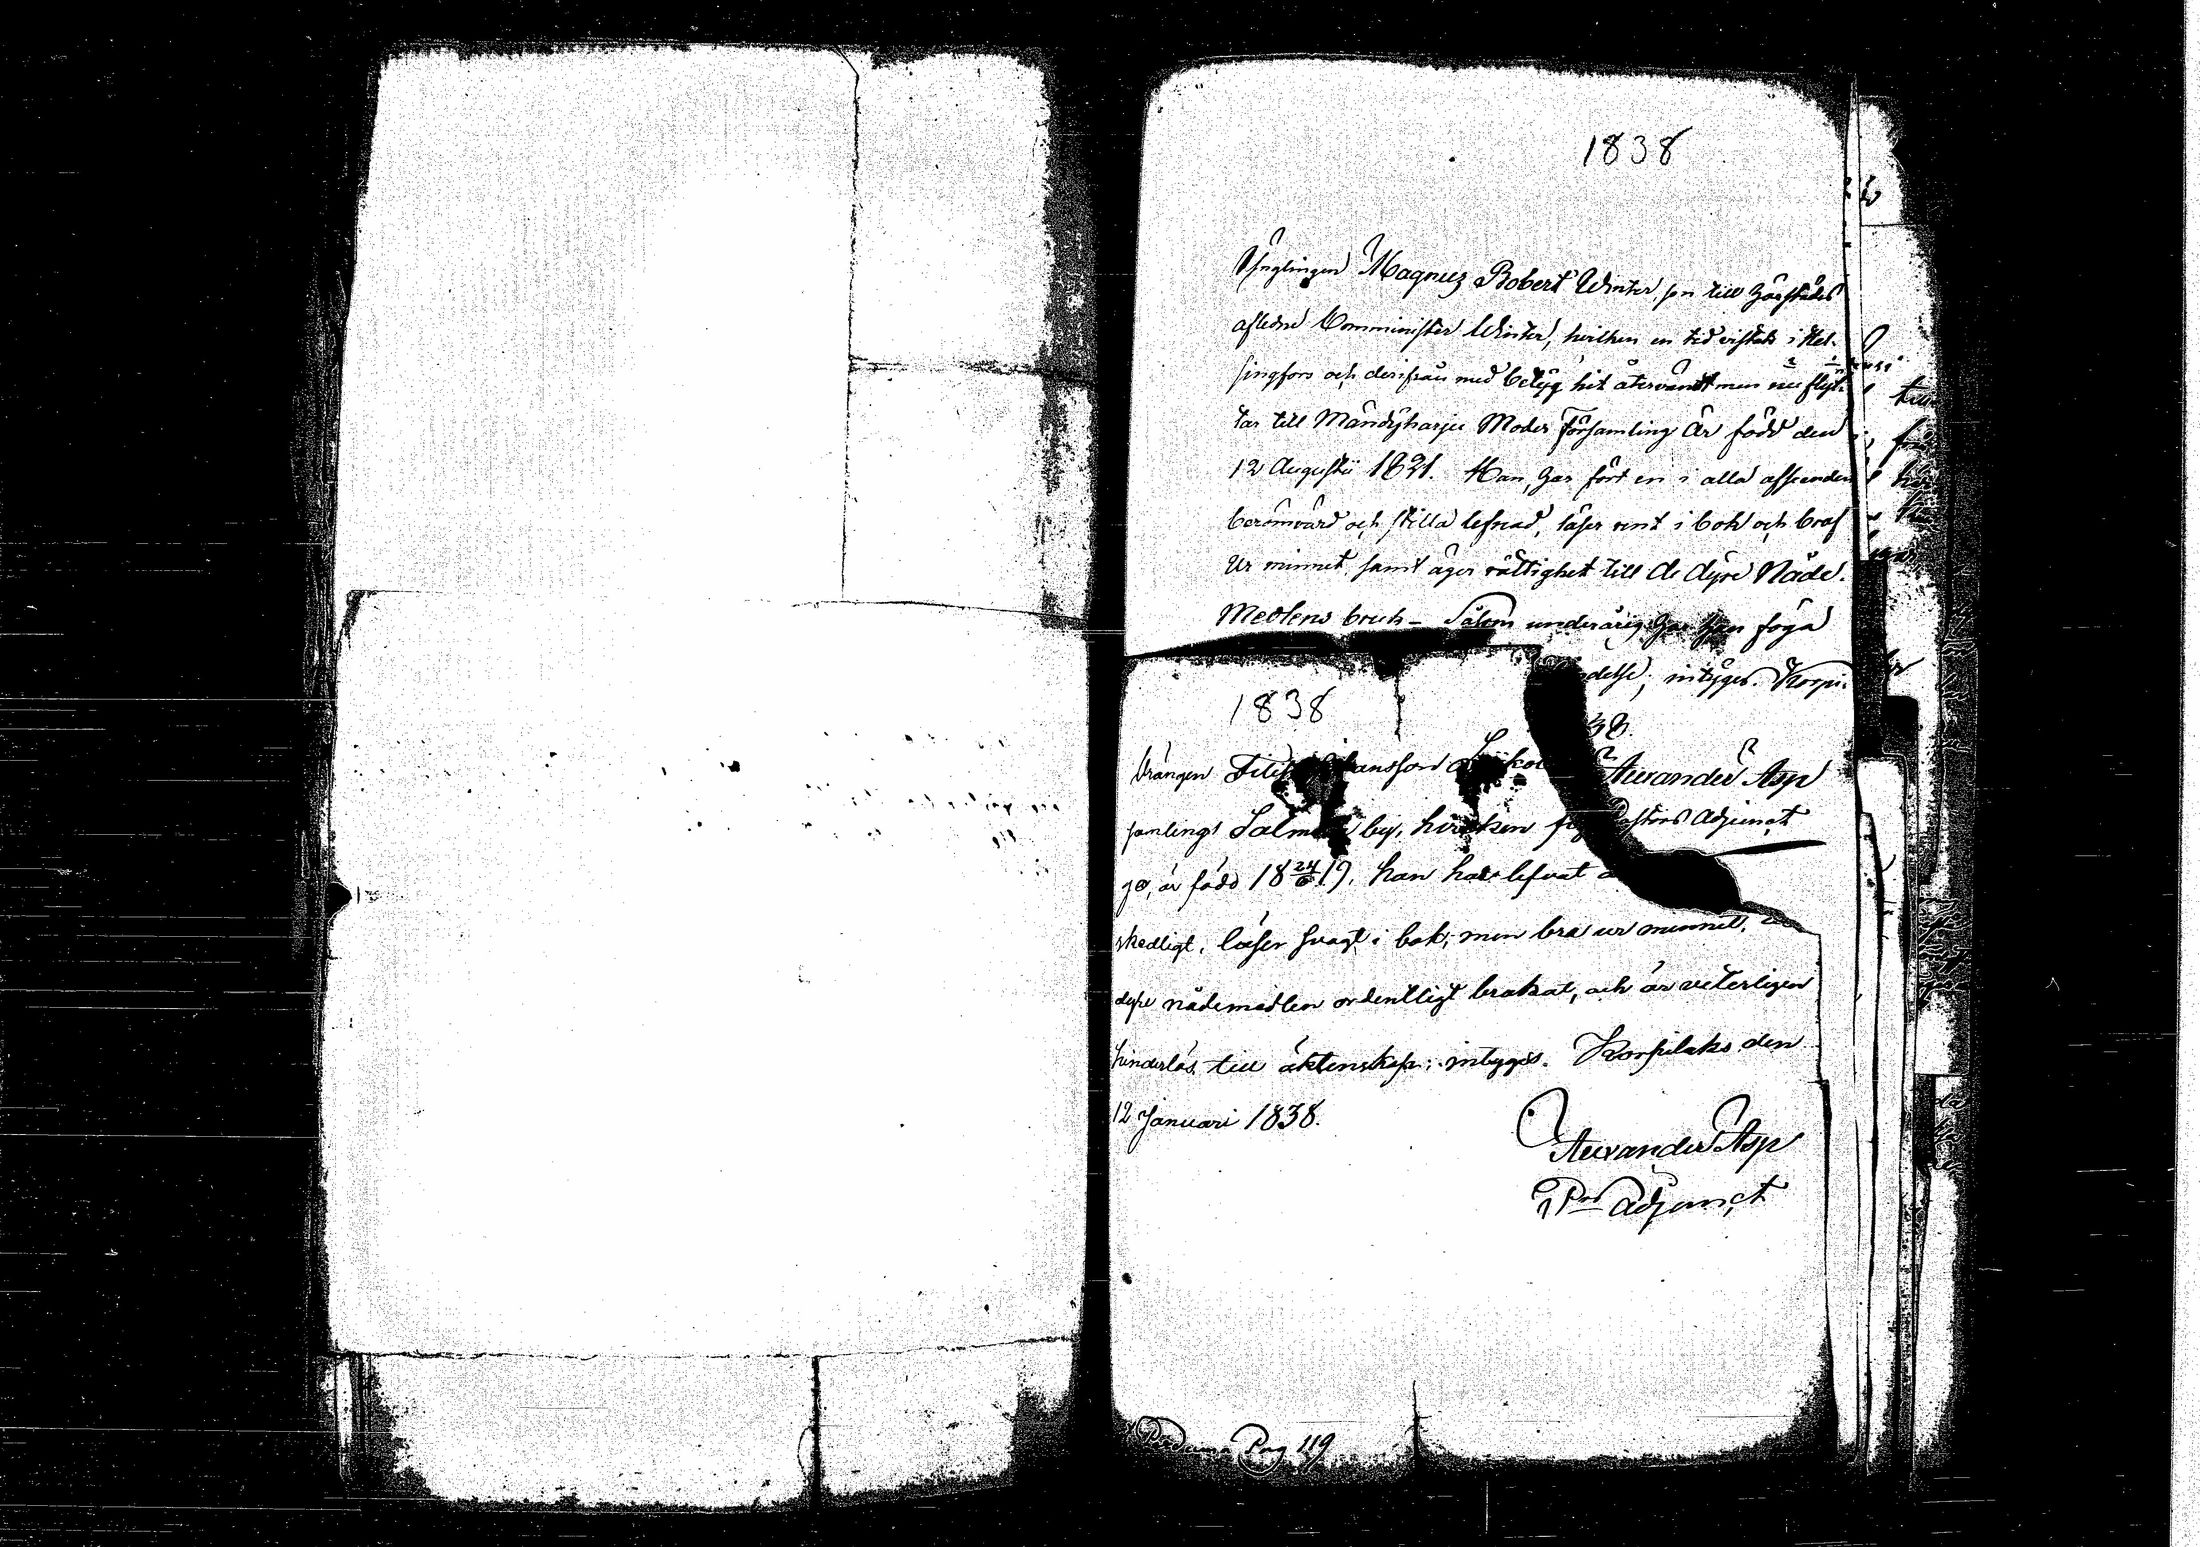 1838
Ynglingen Magnus Robert Winter, son till härstädes
afledne Comminister Winter, hvilken en tid vistats i Hel-
singfors och derifrån med betyg hit återvändt men nu flyt-
tar till Mändyharju Moder församling är född den
12 Augustii 1821. Han har fört en i alla afseenden
berömvärd och stilla lefnad, läser rent i bok och bra
ur minnet samt äger rättighet till de dyre Nåde-
Medlens bruk – Såsom underårig har han föga
ndelse; intygas. Korpi-
38.
Alexander Asp
Pastors Adjunct
1838
Drängen
samlings by, hvilken
ge, är född 18 24/6 19. han har lefvat
skedligt, läser svagt i bok, men bra ur minnet,
dyre nådemedlen ordentligt brukat, och är veterligen
hinderlös till äktenskap; intygas. Korpilaks den
12 Januari 1838.
Alexander Asp
Adjunct
Pag 119